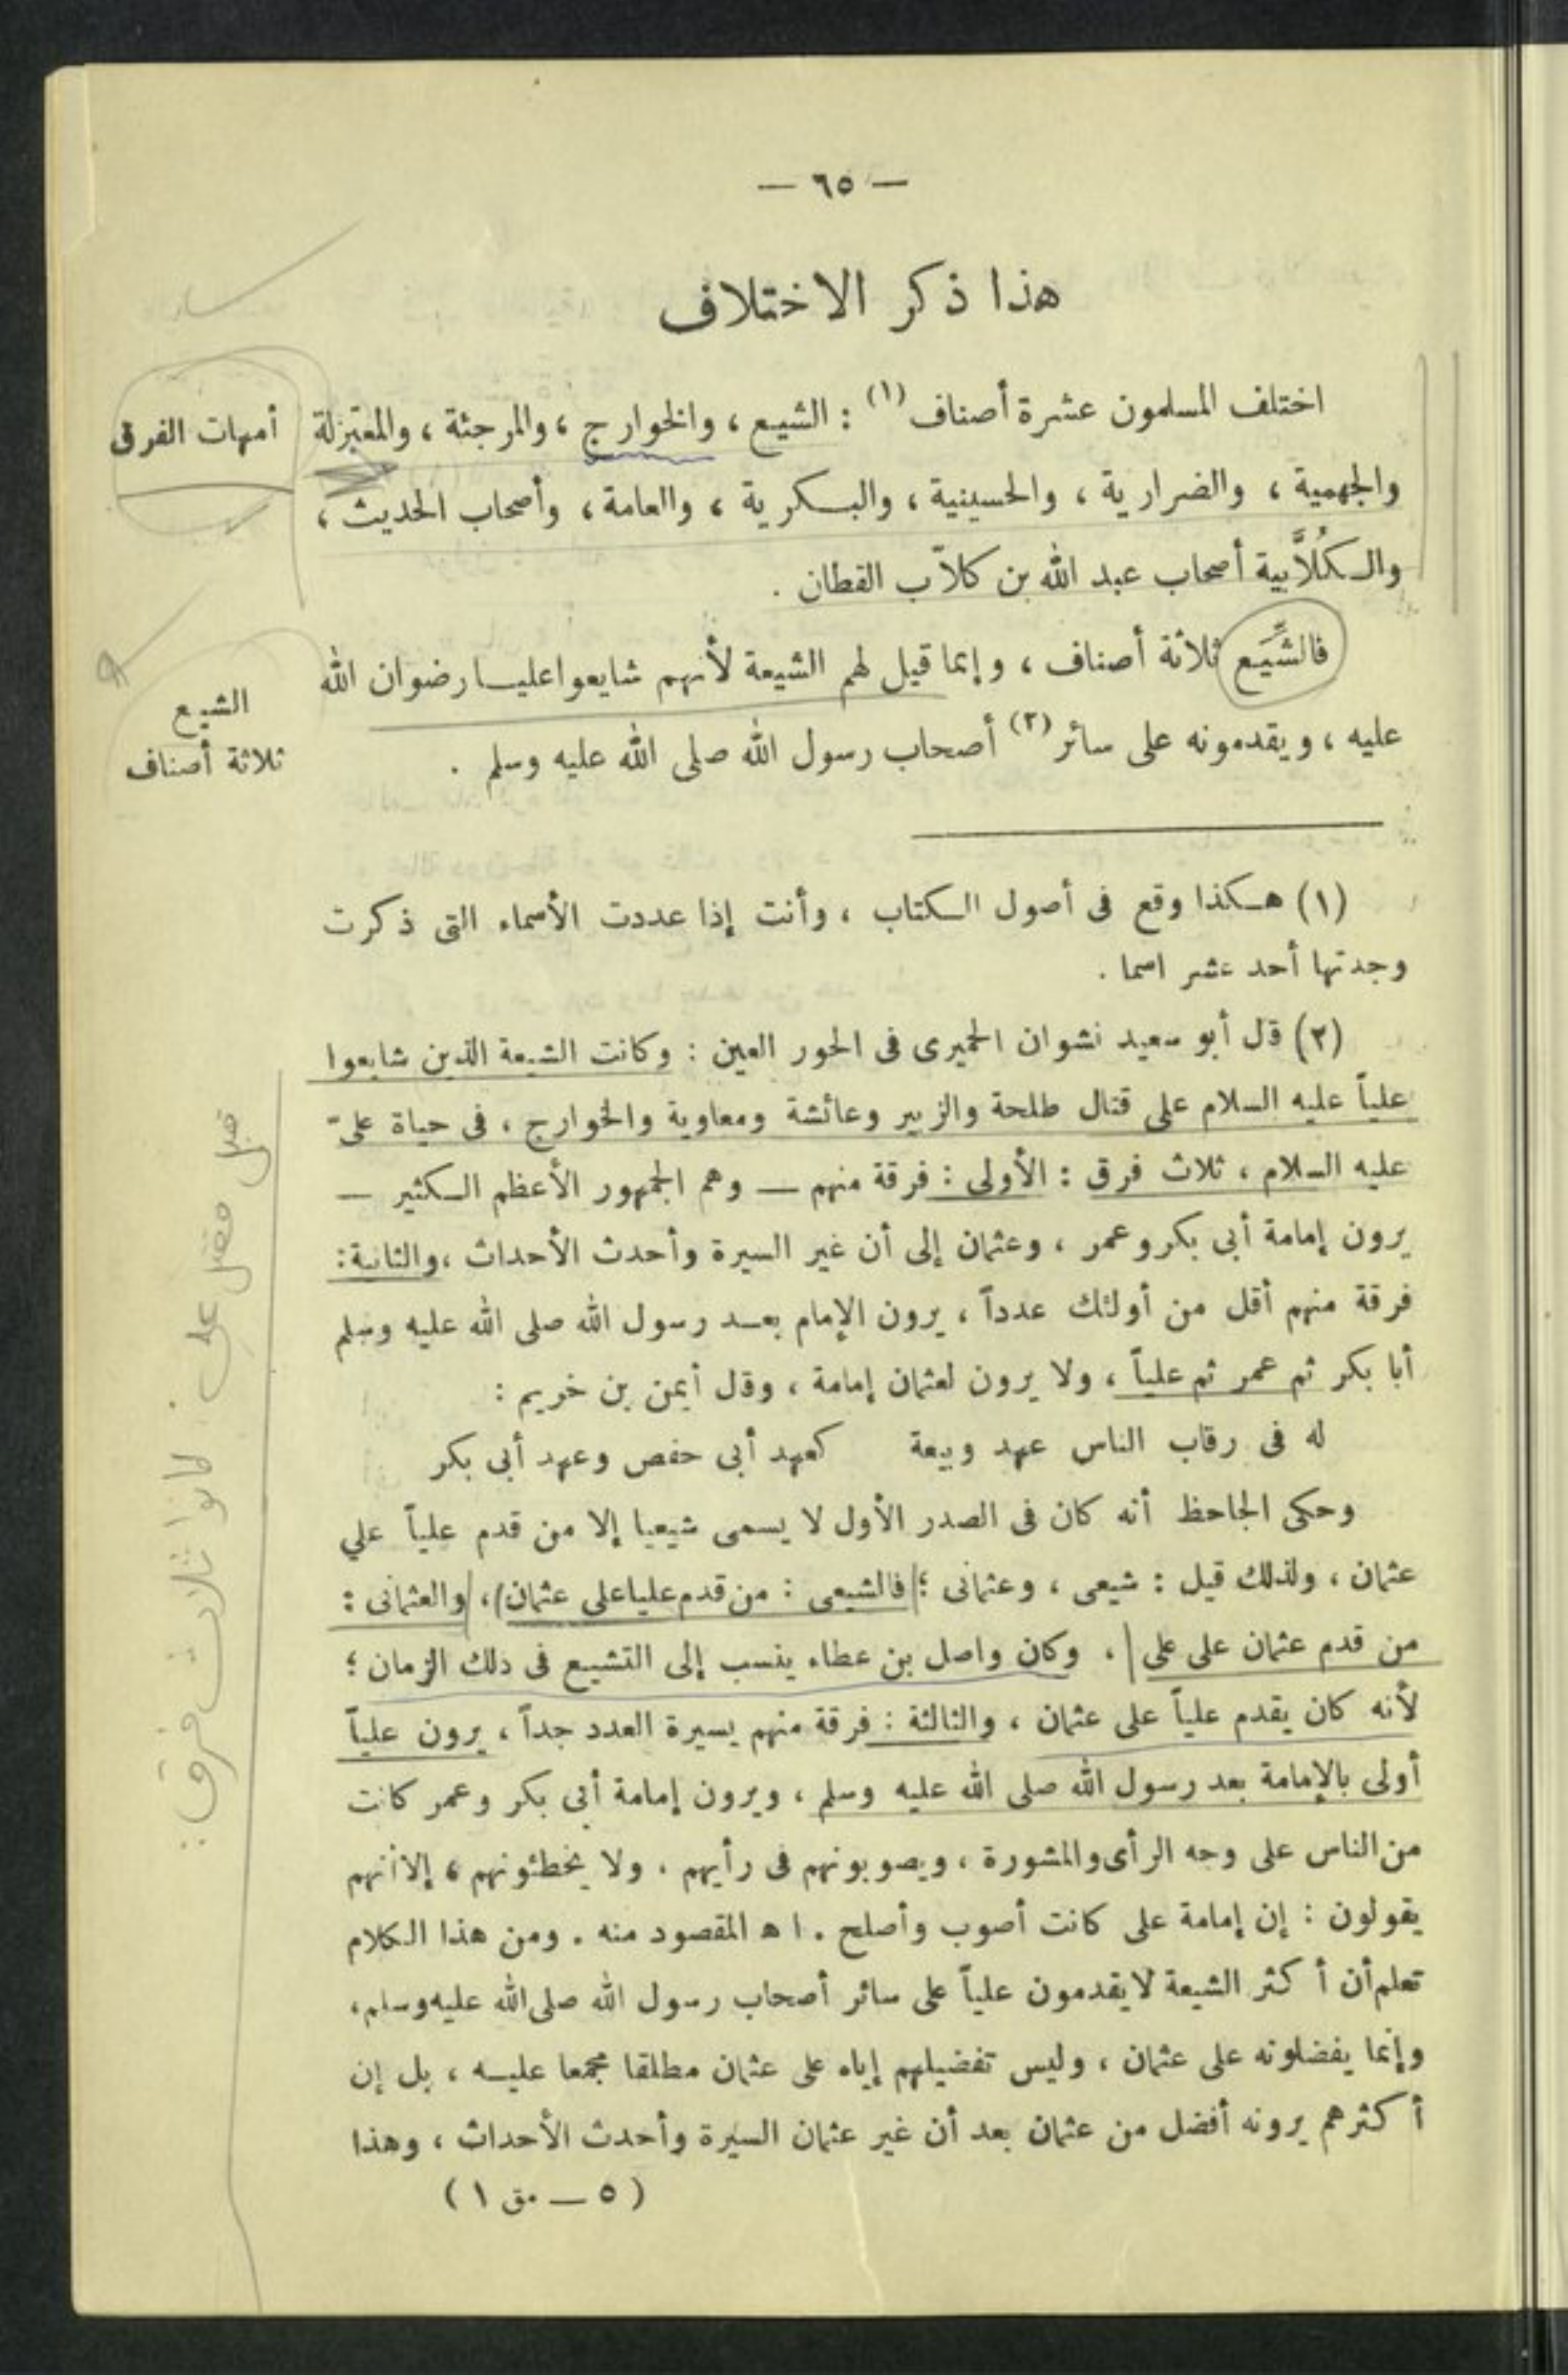 — ٦٥ —
هذا ذكر الاختلاف
اختلف المسلمون عشرة أصناف (١) : الشيع ، والخوارج ، والمرجئة ، والمعتزلة
أمهات الفرق
والجهمية ، والضرارية ، والحسينية ، والبكرية ، والعامة ، وأصحاب الحديث ،
والكُلاَّبية أصحاب عبد الله بن كلاّب القطان .
فالشِّيَع ثلاثة أصناف ، وإنما قيل لهم الشيعة لأنهم شايعوا عليا رضوان الله
الشيع
ثلاثة أصناف
عليه ، ويقدمونه على سائر (٢) أصحاب رسول الله صلى الله عليه وسلم .
(١) هكذا وقع فى أصول الكتاب ، وأنت إذا عددت الأسماء التى ذكرت
وجدتها أحد عشر اسما .
(٢) قال أبو سعيد نشوان الحميرى فى الحور العين : وكانت الشيعة الذين شايعوا
علياً عليه السلام على قتال طلحة والزبير وعائشة ومعاوية والخوارج ، فى حياة علىّ
عليه السلام ، ثلاث فرق : الأولى : فرقة منهم — وهم الجمهور الأعظم الكثير —
يرون إمامة أبى بكر وعمر ، وعثمان إلى أن غير السيرة وأحدث الأحداث ، والثانية :
فرقة منهم أقل من أولئك عدداً ، يرون الإمام بعد رسول الله صلى الله عليه وسلم
أبا بكر ثم عمر ثم علياً ، ولا يرون لعثمان إمامة ، وقال أيمن بن خريم :
له فى رقاب الناس عهد وبيعة كعهد أبى حفص وعهد أبى بكر
وحكى الجاحظ أنه كان فى الصدر الأول لا يسمى شيعيا إلا من قدم علياً علي
عثمان ، ولذلك قيل : شيعى ، وعثمانى ؛ فالشيعى : من قدم عليا على عثمان ، والعثمانى :
من قدم عثمان على على . وكان واصل بن عطاء ينسب إلى التشيع فى ذلك الزمان ؛
لأنه كان يقدم علياً على عثمان ، والثالثة : فرقة منهم يسيرة العدد جداً ، يرون علياً
أولى بالإمامة بعد رسول الله صلى الله عليه وسلم ، ويرون إمامة أبى بكر وعمر كانت
من الناس على وجه الرأى والمشورة ، ويصوبونهم فى رأيهم . ولا يخطئونهم ، إلا أنهم
يقولون : إن إمامة على كانت أصوب وأصلح . ا ه المقصود منه . ومن هذا الكلام
تعلم أن أكثر الشيعة لا يقدمون علياً على سائر أصحاب رسول الله صلى الله عليه وسلم ،
وإنما يفضلونه على عثمان ، وليس تفضيلهم إياه على عثمان مطلقا مجمعا عليه ، بل إن
أكثرهم يرونه أفضل من عثمان بعد أن غير عثمان السيرة وأحدث الأحداث ، وهذا
( ٥ — مق ١ )
قبل مقتل علي . كانوا ثلاث فرق :